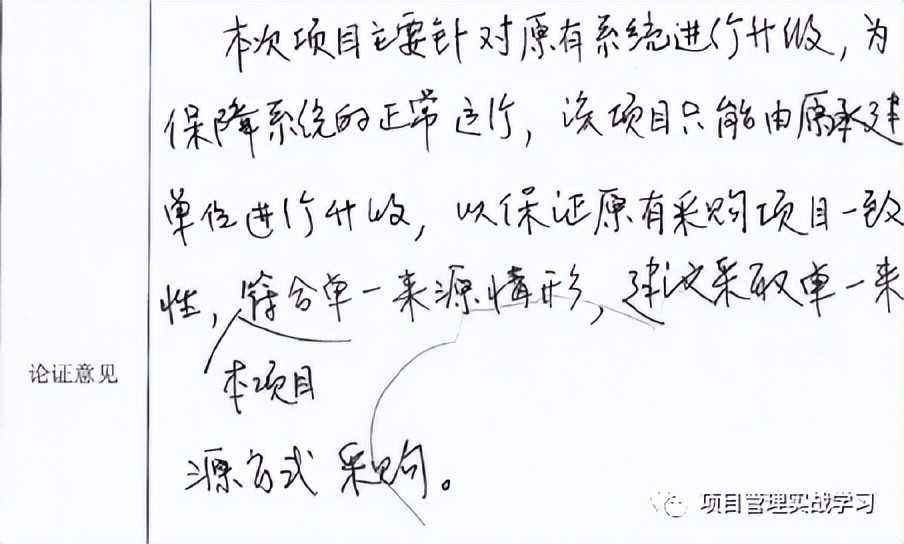 本次项目主要针对原有系统进行升级，为
保障系统的正常运行，该项目只能由原承建
单位进行升级，以保证原有采购项目一致
性，符合单一来源情形，建议采取单一来
论证意见
本项目
源方式采购。
项目管理实战学习